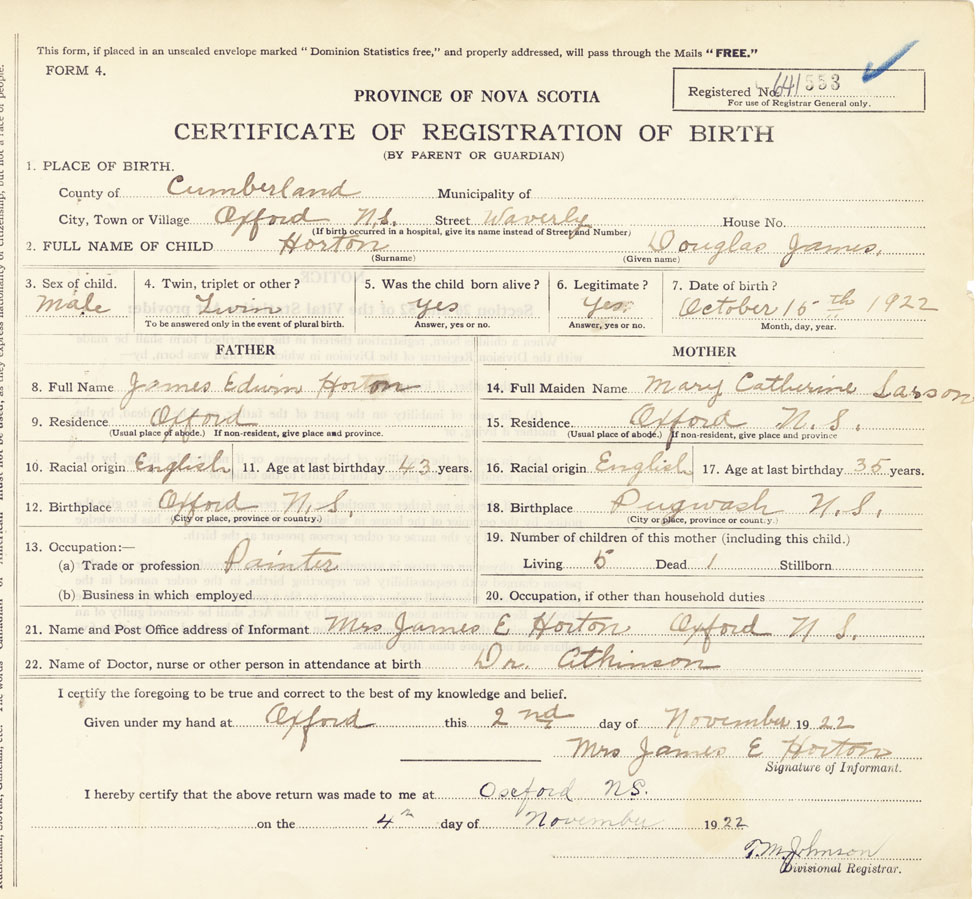 This form, if placed in an unsealed envelope marked "Dominion Statistics free," and properly addressed, will pass through the Mails "FREE."
FORM 4.
Registered No. 641553
For use of Registrar General only.
PROVINCE OF NOVA SCOTIA
CERTIFICATE OF REGISTRATION OF BIRTH
(BY PARENT OR GUARDIAN)
1. PLACE OF BIRTH.
County of Cumberland Municipality of
City, Town or Village Oxford N.S. Street Waverly House No.
(If birth occurred in a hospital, give its name instead of Street and Number)
2. FULL NAME OF CHILD Horton Douglas James,
(Surname) (Given name)
3. Sex of child. 4. Twin, triplet or other? 5. Was the child born alive? 6. Legitimate? 7. Date of birth?
Male Twin Yes Yes. October 15th 1922
To be answered only in the event of plural birth. Answer, yes or no. Answer, yes or no. Month, day, year.
FATHER MOTHER
8. Full Name James Edwin Horton 14. Full Maiden Name Mary Catherine Larson
9. Residence Oxford 15. Residence Oxford N.S.
(Usual place of abode.) If non-resident, give place and province. (Usual place of abode.) If non-resident, give place and province
10. Racial origin English 11. Age at last birthday 43 years. 16. Racial origin English 17. Age at last birthday 35 years.
12. Birthplace Oxford N.S. 18. Birthplace Pugwash N.S.
(City or place, province or country.) (City or place, province or country.)
13. Occupation:— 19. Number of children of this mother (including this child.)
(a) Trade or profession Painter Living 5 Dead 1 Stillborn
(b) Business in which employed 20. Occupation, if other than household duties
21. Name and Post Office address of Informant Mrs James E Horton Oxford N S.
22. Name of Doctor, nurse or other person in attendance at birth Dr. Atkinson
I certify the foregoing to be true and correct to the best of my knowledge and belief.
Given under my hand at Oxford this 2nd day of November 1922
Mrs James E Horton
Signature of Informant.
I hereby certify that the above return was made to me at Oxford NS.
on the 4th day of November 1922
T.M. Johnson
Divisional Registrar.